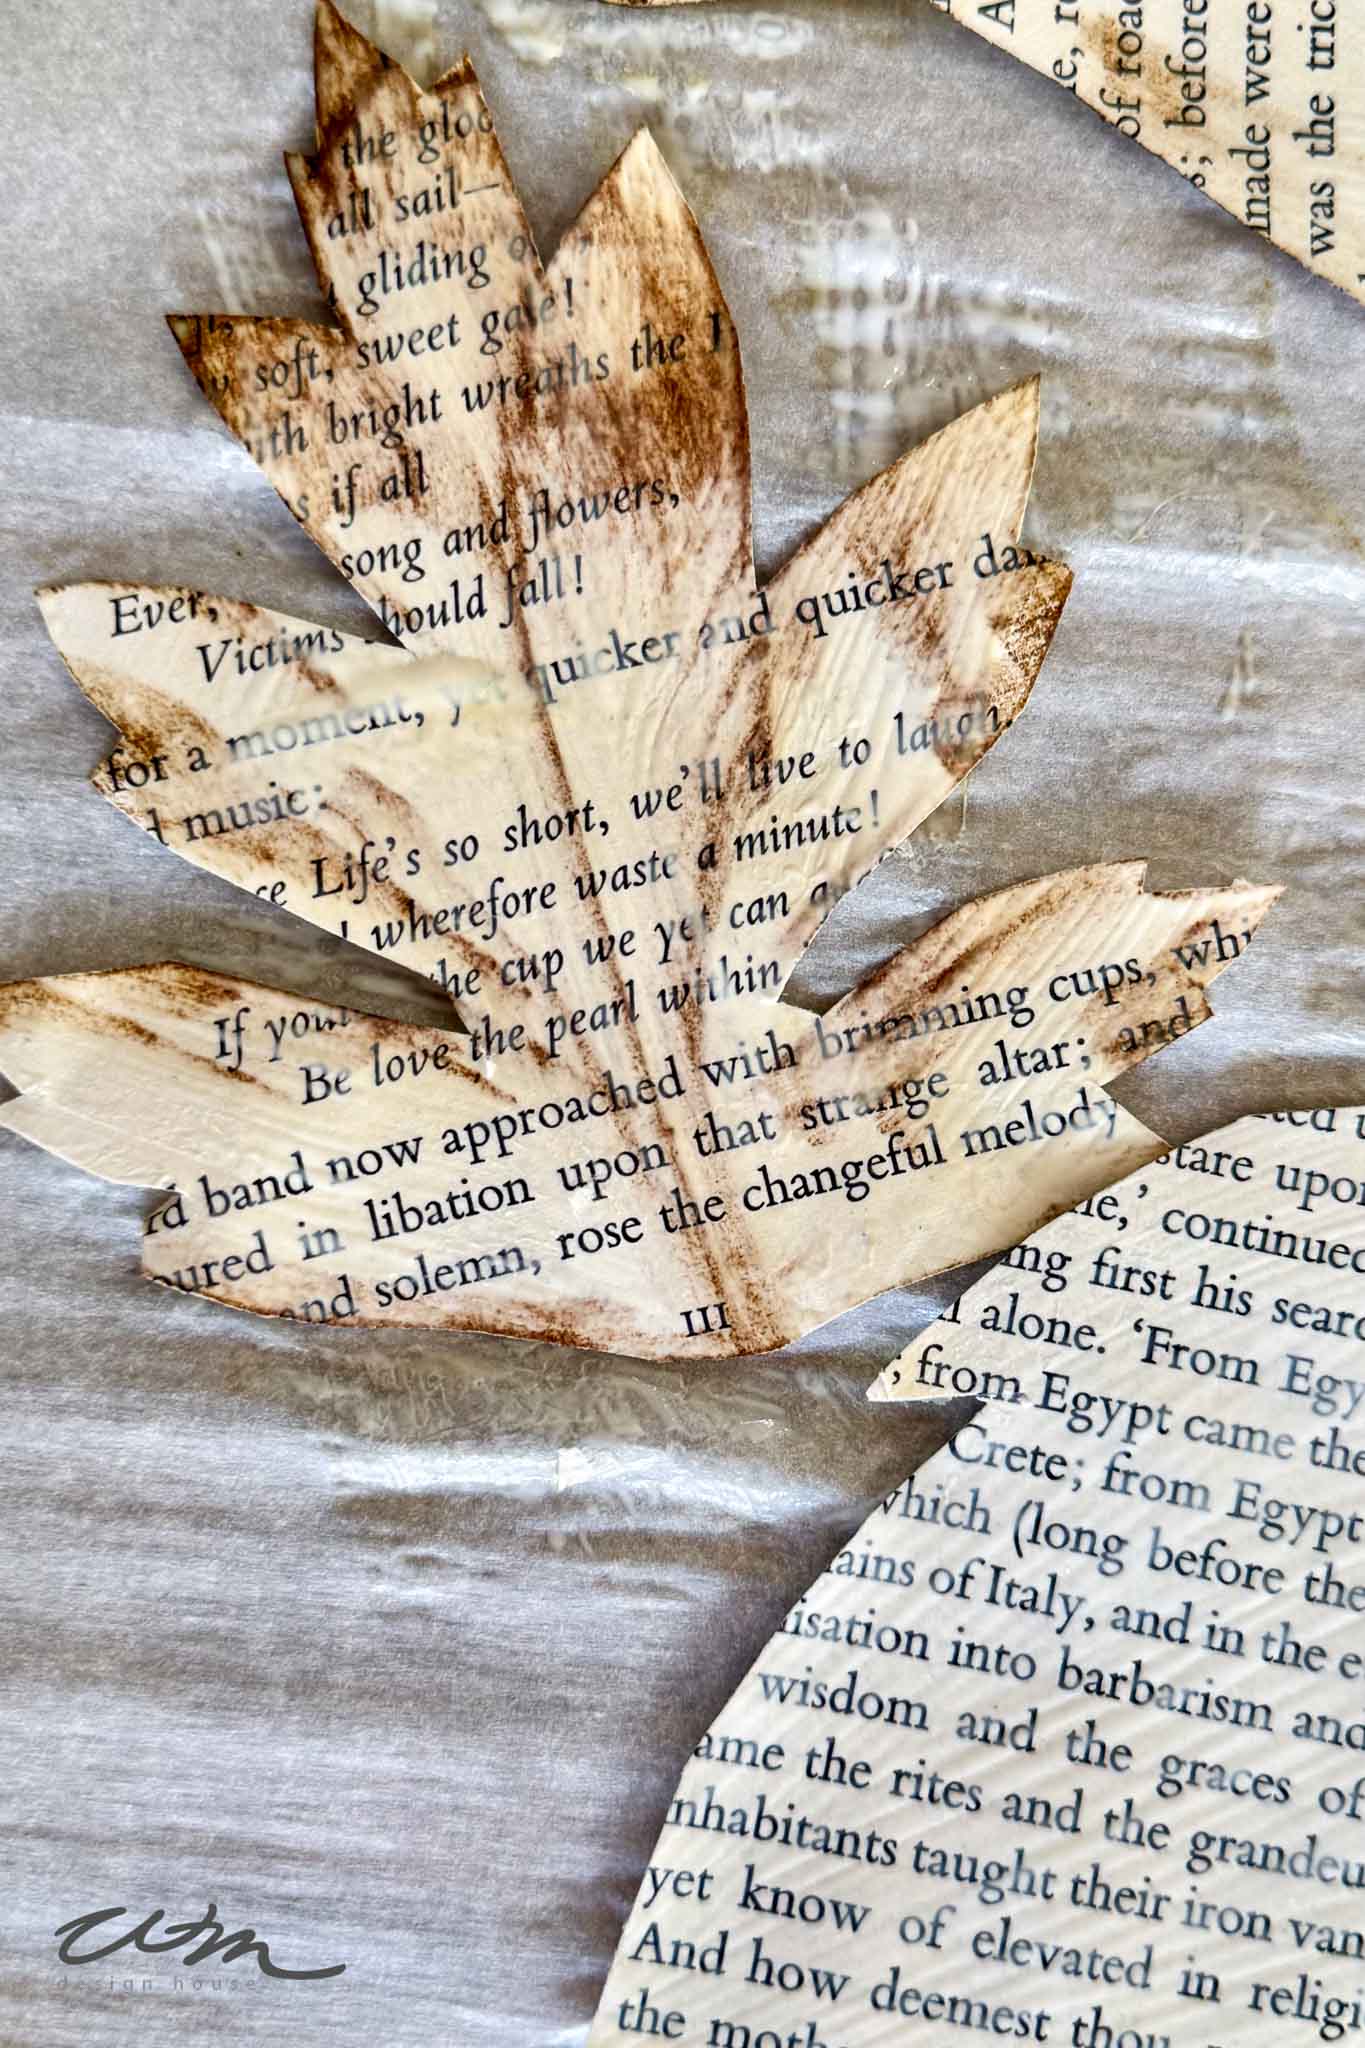 the
all sail—
gliding
soft, sweet gale!
with bright wreaths the
if all
song and flowers,
Ever,
Victims should fall!
for a moment, yet quicker and quicker
music:
Life's so short, we'll live to laugh,
wherefore waste a minute!
the cup we yet can
If
Be love the pearl within
band now approached with brimming cups,
in libation upon that strange altar; and
and solemn, rose the changeful melody
III
of
; before
made were
was the
stare upon
,' continued
first his
alone. 'From
; from Egypt came the
Crete; from Egypt
which (long before the
of Italy, and in the
into barbarism and
wisdom and the graces of
the rites and the
inhabitants taught their iron
yet know of elevated in
And how deemest thou
the
wtm
design house